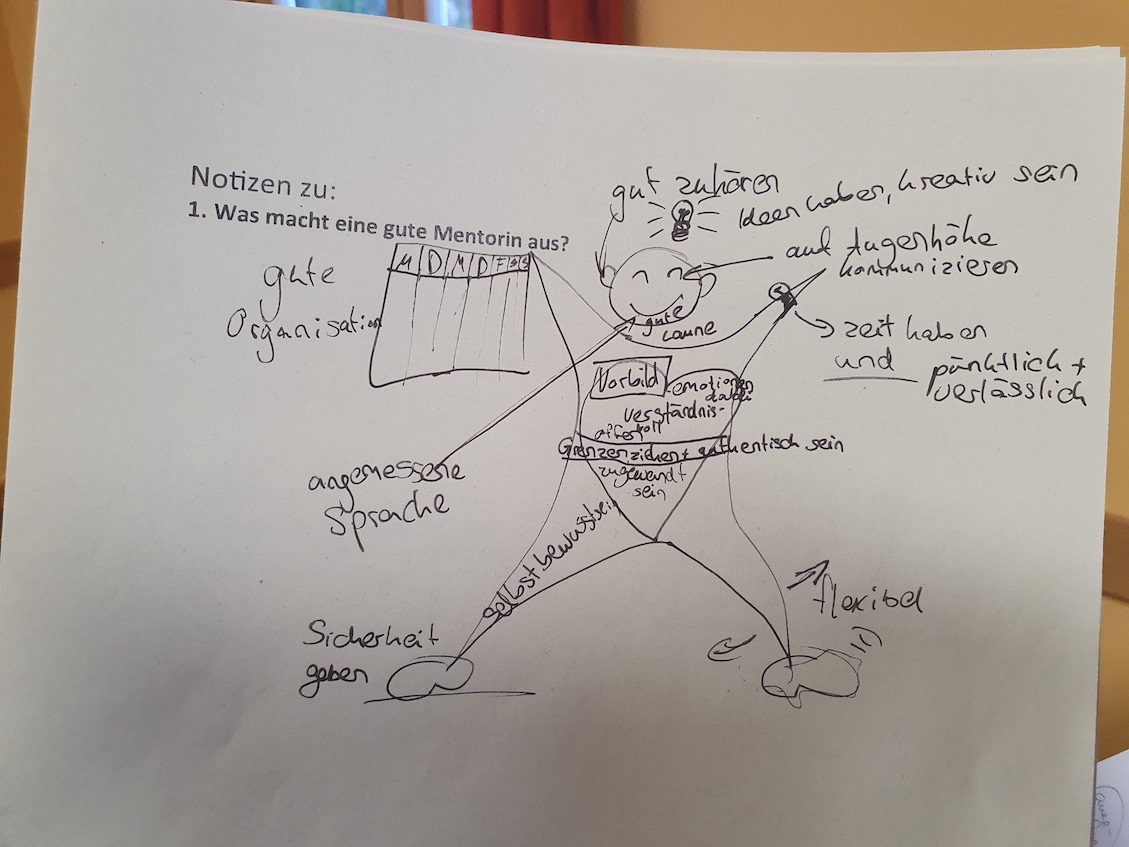 Notizen zu:
1. Was macht eine gute Mentorin aus?
gut zuhören
Ideen haben, kreativ sein
auf Augenhöhe
kommunizieren
M D M D F S S
gute
Organisation
gute
Laune
zeit haben
und pünktlich +
verlässlich
Vorbild
emotionen
dabei
verständnis-
voll
offen
Grenzen ziehen + authentisch sein
zugewandt
sein
angemessene
Sprache
selbstbewusstsein
flexibel
Sicherheit
geben